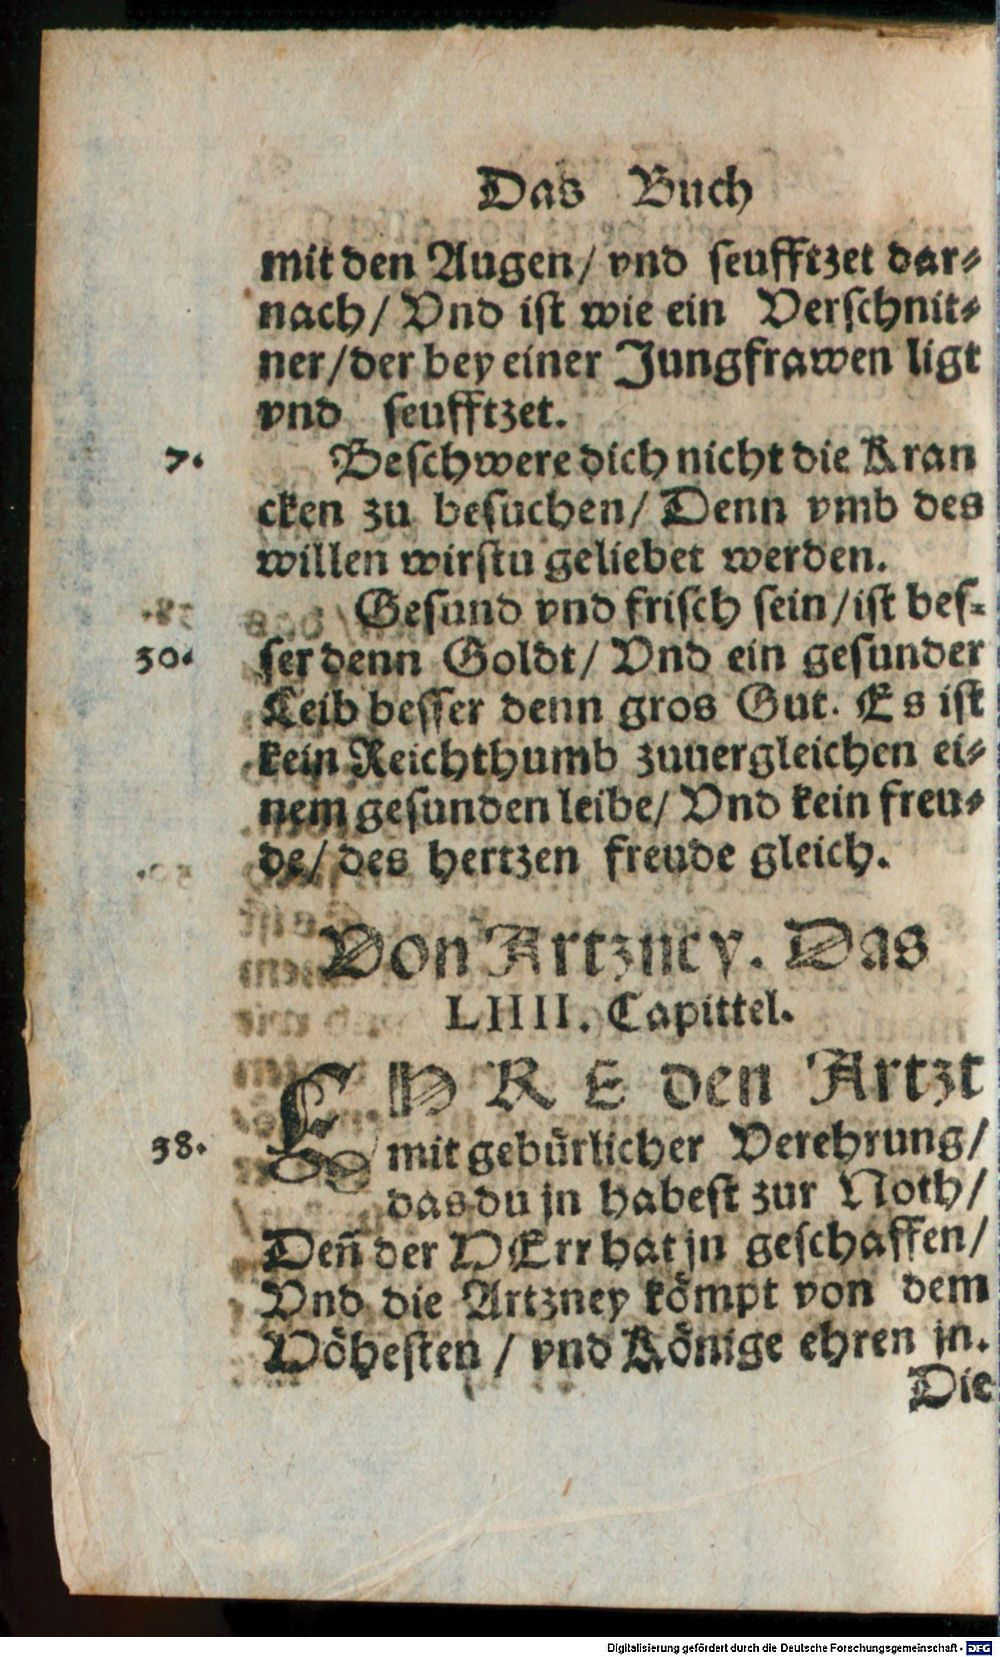 Das Buch
mit den Augen/ vnd seufftzet dar-
nach/ Vnd ist wie ein Verschnit-
ner/ der bey einer Jungfrawen ligt
vnd seufftzet.
7. Beschwere dich nicht die Kran
cken zu besuchen/ Denn vmb des
willen wirstu geliebet werden.
Gesund vnd frisch sein/ ist bes-
30. ser denn Goldt/ Vnd ein gesunder
Leib besser denn gros Gut. Es ist
kein Reichthumb zuuergleichen ei-
nem gesunden leibe/ Vnd kein freu-
de/ des hertzen freude gleich.
Von Artzney. Das
LIIII. Capittel.
EHRE den Artzt
38. mit gebürlicher Verehrung/
das du jn habest zur Noth/
Deñ der HErr hat jn geschaffen/
Vnd die Artzney kömpt von dem
Höhesten / vnd Könige ehren jn.
Die
Digitalisierung gefördert durch die Deutsche Forschungsgemeinschaft - DFG